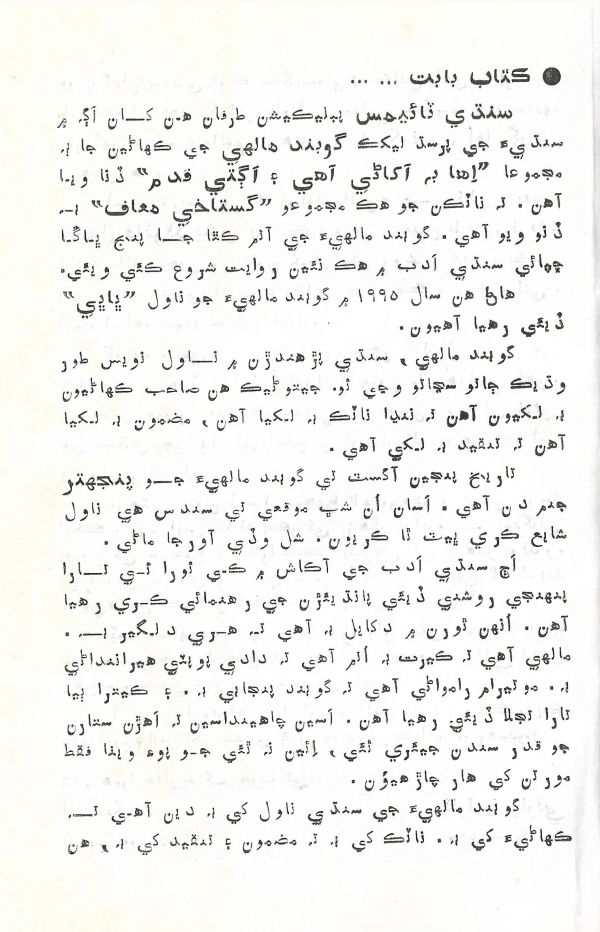 ● ڪتاب بابت ... ...
سنڌي ٽائيمس پبليڪيشن طرفان هن کان اڳ ۾
سنڌيءَ جي پرسڌ ليکڪ گوبند مالهي جي ڪهاڻين جا ٻہ
مجموعا ”اِها بہ آکاڻي آهي ۽ اڳتي قدم“ ڏنا ويا
آهن . تہ ناٽڪن جو هڪ مجموعو ”گستاخي معاف“ بہ
ڏنو ويو آهي . گوبند مالهيءَ جي آتم ڪٿا جا پنج ڀاڱا
ڇپائي سنڌي اَدب ۾ هڪ نئين روايت شروع ڪئي ويئي.
هاڻ هن سال ١٩٩٥ ۾ گوبند مالهيءَ جو ناول ”ڀاڀي“
ڏيئي رهيا آهيون .
گوبند مالهي، سنڌي پڙهندڙن ۾ ناول نويس طور
وڌيڪ ڄاتو سڃاتو وڃي ٿو. جيتوڻيڪ هن صاحب ڪهاڻيون
بہ لکيون آهن تہ ننڍا ناٽڪ بہ لکيا آهن، مضمون بہ لکيا
آهن تہ تنقيد بہ لکي آهي .
تاريخ پنجين آگسٽ تي گوبند مالهيءَ جو پنجهتر
جنم دن آهي . اَسان اُن شڀ موقعي تي سندس هي ناول
شايع ڪري ڀيٽ ٿا ڪريون . شل وڏي آورجا ماڻي .
اَڄ سنڌي اَدب جي آڪاش ۾ ڪي ٿورا ئي تارا
پنهنجي روشني ڏيئي پانڌيئڙن جي رهنمائي ڪري رهيا
آهن . اُنهن ٿورن ۾ دکايل بہ آهي تہ هري دلگير بہ .
مالهي آهي تہ ڪيرت بہ . اُتم آهي تہ دادي پوپٽي هيراننداڻي
بہ . موتيرام رامواڻي آهي تہ گوبند پنجابي بہ . ۽ ڪيترا ٻيا
تارا تجلا ڏيئي رهيا آهن . اَسين چاهينداسين تہ اَهڙن ستارن
جو قدر سندن جيئري ٿئي، اِئين نہ ٿئي جو پوءِ ويٺا فقط
مورتن کي هار چاڙهيون .
گوبند مالهيءَ جي سنڌي ناول کي بہ دين آهي تہ
ڪهاڻيءَ کي بہ . ناٽڪ کي بہ تہ مضمون ۽ تنقيد کي بہ، هن